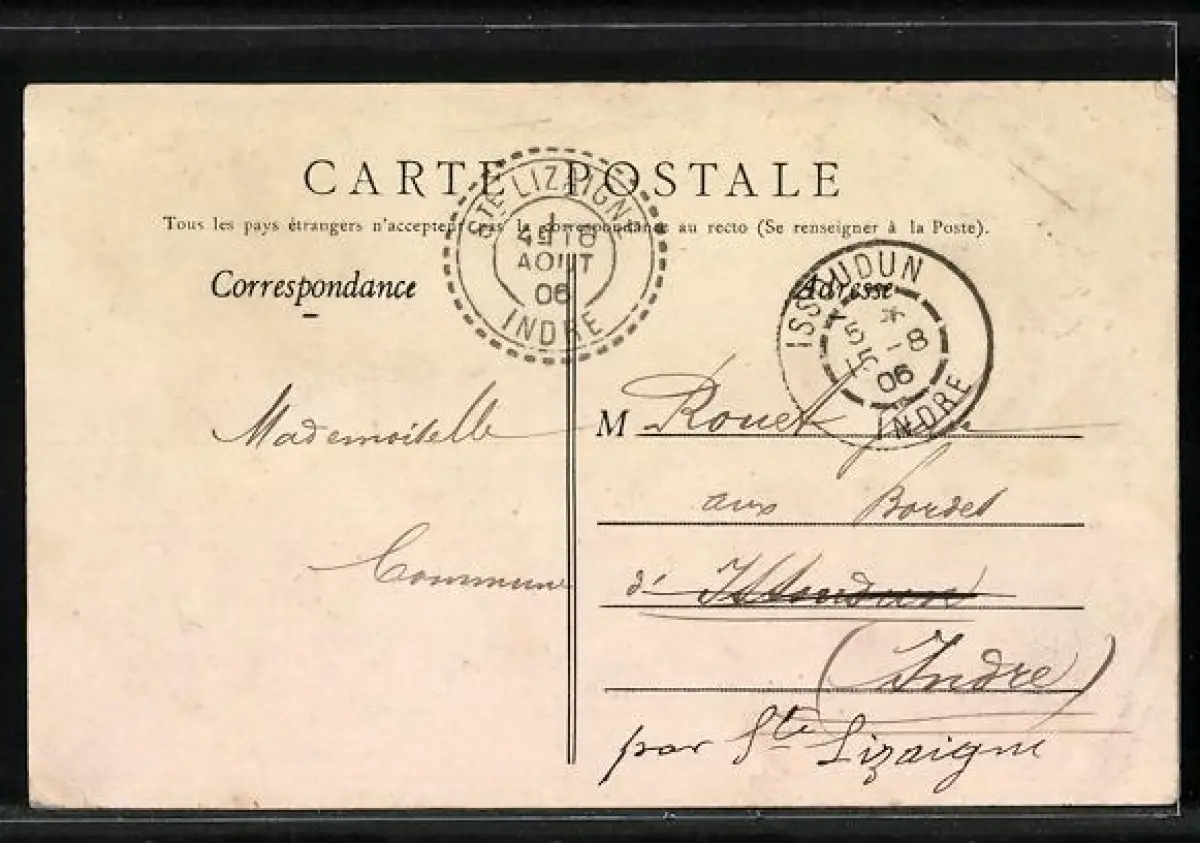 CARTE POSTALE
Tous les pays étrangers n'acceptent pas la correspondance au recto (Se renseigner à la Poste).
STE LIZAIGNE
AOUT
06
INDRE
ISSOUDUN
5
15 -8
06
INDRE
Correspondance
Adresse
Mademoiselle
M Rouet
aux Bordes
Commune
d'Issoudun
(Indre)
par Ste Lizaigne